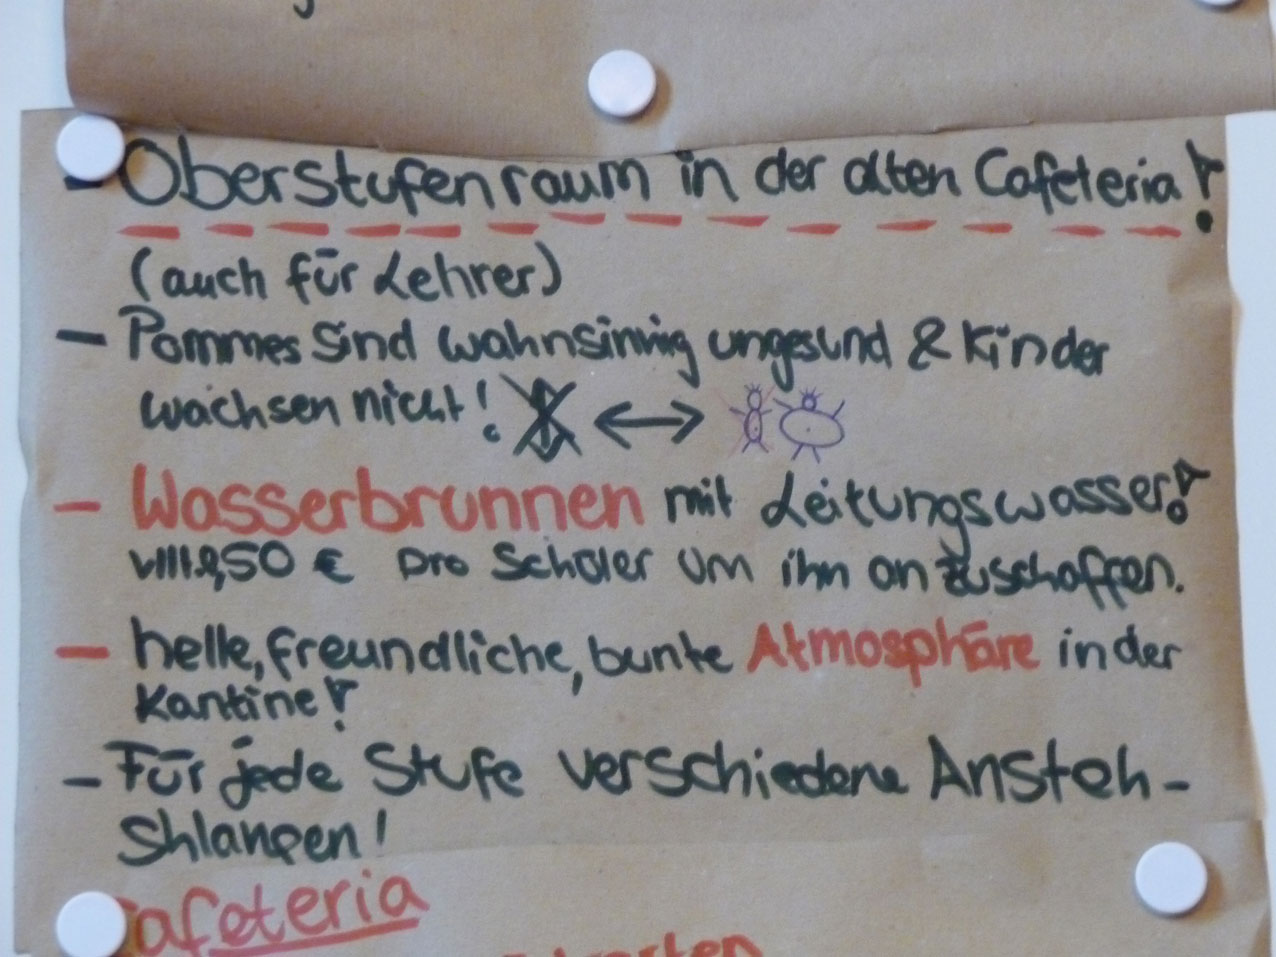 - Oberstufenraum in der alten Cafeteria!
(auch für Lehrer)
- Pommes sind wahnsinnig ungesund & Kinder
wachsen nicht!
- Wasserbrunnen mit Leitungswasser!
50 € pro Schüler um ihn anzuschaffen.
- helle, freundliche, bunte Atmosphäre in der
Kantine!
- Für jede Stufe verschiedene Ansteh-
shlangen!
Cafeteria